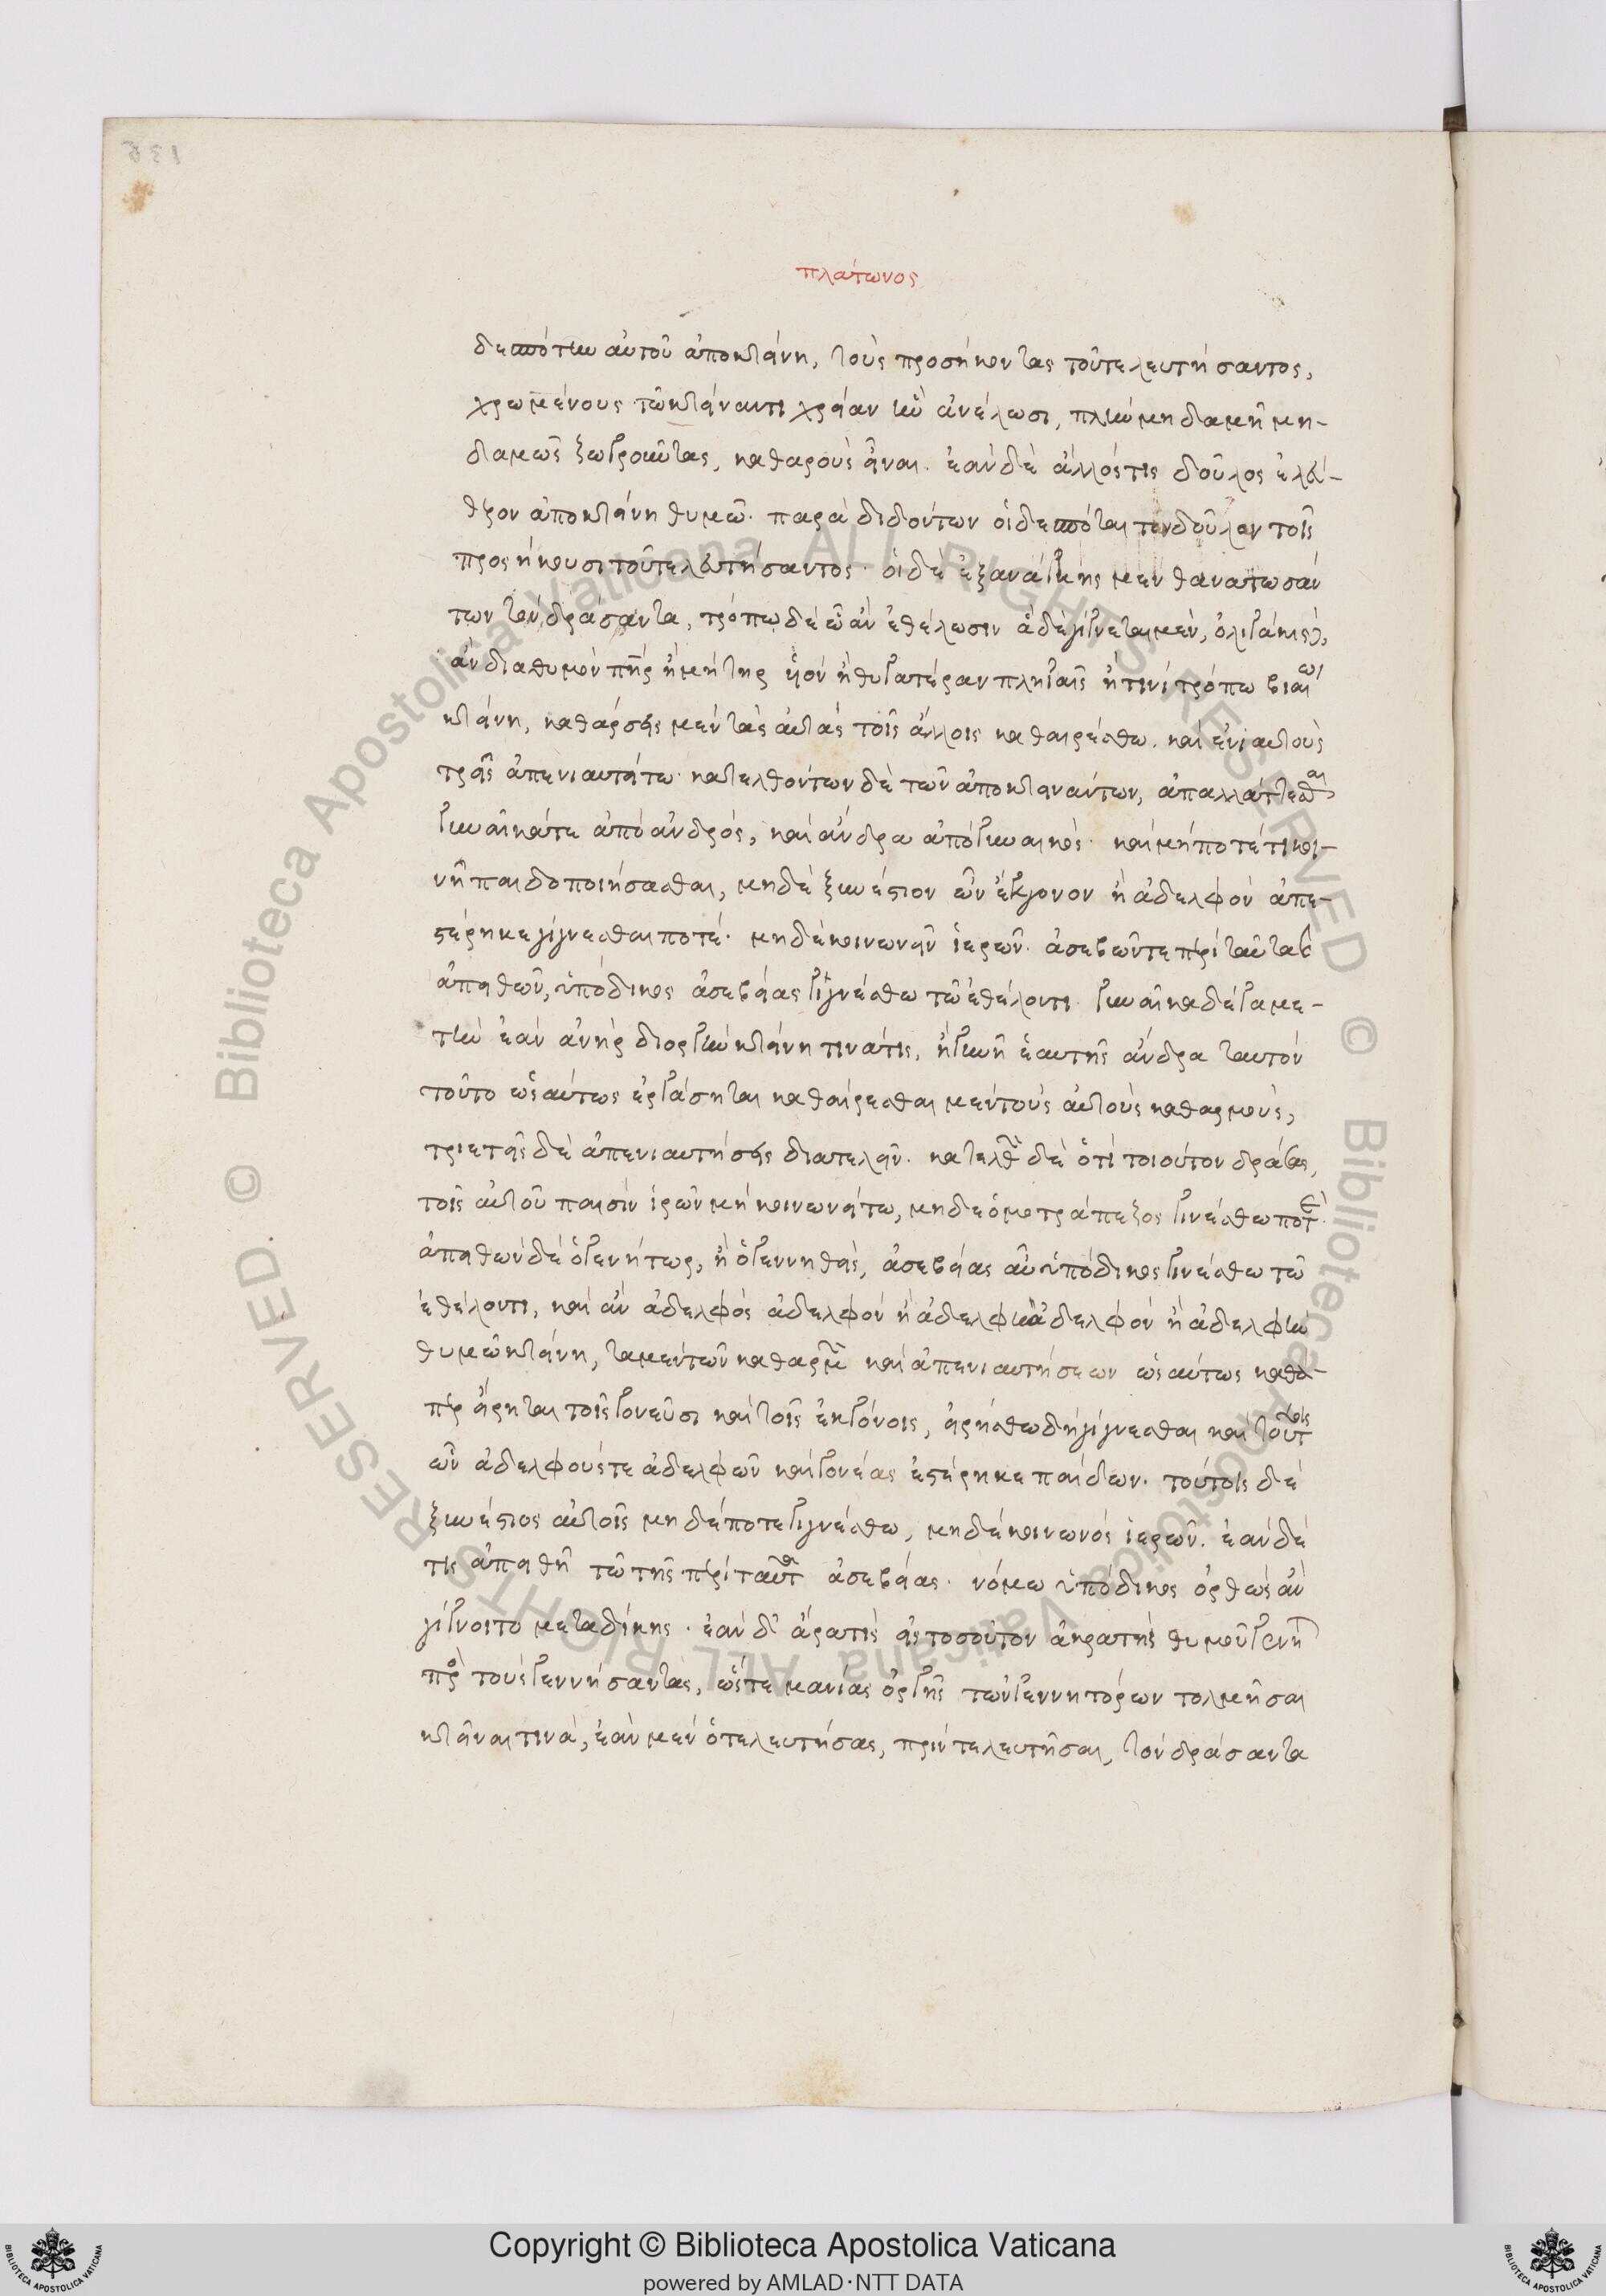 πλάτωνος
δεσπότην αὐτοῦ ἀποκτείνῃ, τοὺς προσήκοντας τοῦ τελευτήσαντος,
χρωμένους τῷ κτείναντι χρείαν ἣν ἂν ἐθέλωσι, πλὴν μηδαμῇ μη-
δαμῶς ζωγροῦντας, καθαροὺς εἶναι. ἐὰν δὲ ἄλλός τις δοῦλος ἐλεύ-
θερον ἀποκτείνῃ θυμῷ. παραδιδόντων οἱ δεσπόται τὸν δοῦλον τοῖς
προσήκουσι τοῦ τελευτήσαντος. οἱ δὲ ἐξανάγκης μὲν θανατωσάν
των τὸν δράσαντα, τρόπῳ δὲ ᾧ ἂν ἐθέλωσιν ἃ δὲ γίγνεται μὲν, ὀλιγάκις δέ,
ἂν διὰ θυμὸν πατὴρ ἢ μήτηρ ὑὸν ἢ θυγατέραν πληγαῖς ἤ τινι τρόπῳ βιαίῳ
κτείνῃ, καθάρσεις μὲν τὰς αὐτὰς τοῖς ἄλλοις καθαιρέσθω. καὶ ἐνιαυτοὺς
τρεῖς ἀπενιαυτείτω. κατελθόντων δὲ τῶν ἀποκτεινάντων, ἀπαλλάττεσθαι
γυναῖκά τε ἀπὸ ἀνδρός, καὶ ἄνδρα ἀπὸ γυναικός. καὶ μήποτέ τι κοι-
νῇ παιδοποιήσασθαι, μηδὲ ξυνέστιον ὧν ἔκγονον ἢ ἀδελφὸν ἀπε-
στέρηκε γίγνεσθαι ποτέ. μηδὲ κοινωνεῖν ἱερῶν. ὁ ἀσεβῶν τε περὶ ταῦτα καὶ
ἀπειθῶν, ὑπόδικος ἀσεβείας γιγνέσθω τῷ ἐθέλοντι. γυναῖκα δὲ γαμε-
τὴν ἐὰν ἀνὴρ δι' ὀργὴν κτείνῃ τινά τις, ἢ γυνὴ ἑαυτῆς ἄνδρα ταυτὸν
τοῦτο ὡσαύτως ἐργάσηται καθαίρεσθαι μὲν τοὺς αὐτοὺς καθαρμούς,
τριετεῖς δὲ ἀπενιαυτήσεις διατελεῖν. κατελθὼν δὲ ὅ τι τοιοῦτον δράσας,
τοῖς αὐτοῦ παισὶν ἱερῶν μὴ κοινωνείτω, μηδὲ ὁμοτράπεζος γινέσθω ποτέ.
ἀπειθῶν δὲ ὁ γεννήτωρ, ἢ ὁ γεννηθείς, ἀσεβείας αὖ ὑπόδικος γινέσθω τῷ
ἐθέλοντι, καὶ ἂν ἀδελφὸς ἀδελφὸν ἢ ἀδελφὴν ἢ ἀδελφὴ ἀδελφὸν ἢ ἀδελφὴν
θυμῷ κτείνῃ, τὰ μὲν τῶν καθαρμῶν καὶ ἀπενιαυτήσεων ὡσαύτως καθά-
περ εἴρηται τοῖς γονεῦσι καὶ τοῖς ἐκγόνοις, εἰρήσθω δὴ γίγνεσθαι καὶ τούτοις
ὧν ἀδελφούς τε ἀδελφῶν καὶ γονέας ἐστέρηκε παίδων. τούτοις δὲ
ξυνέστιος αὐτοῖς μηδέποτε γιγνέσθω, μηδὲ κοινωνὸς ἱερῶν. ἐὰν δέ
τις ἀπειθῇ τῷ τῆς περὶ ταῦτα ἀσεβείας. νόμῳ ὑπόδικος ὀρθῶς ἂν
γίγνοιτο μετὰ δίκης. ἐὰν δ' ἄρα τις εἰς τοσοῦτον ἀκρατὴς θυμοῦ γένη
πρὸς τοὺς γεννήσαντας, ὥστε μανίαις ὀργῆς τῶν γεννητόρων τολμῆσαι
κτεῖναι τινά, ἐὰν μὲν ὁ τελευτήσας, πρὶν τελευτῆσαι, τὸν δράσαντα